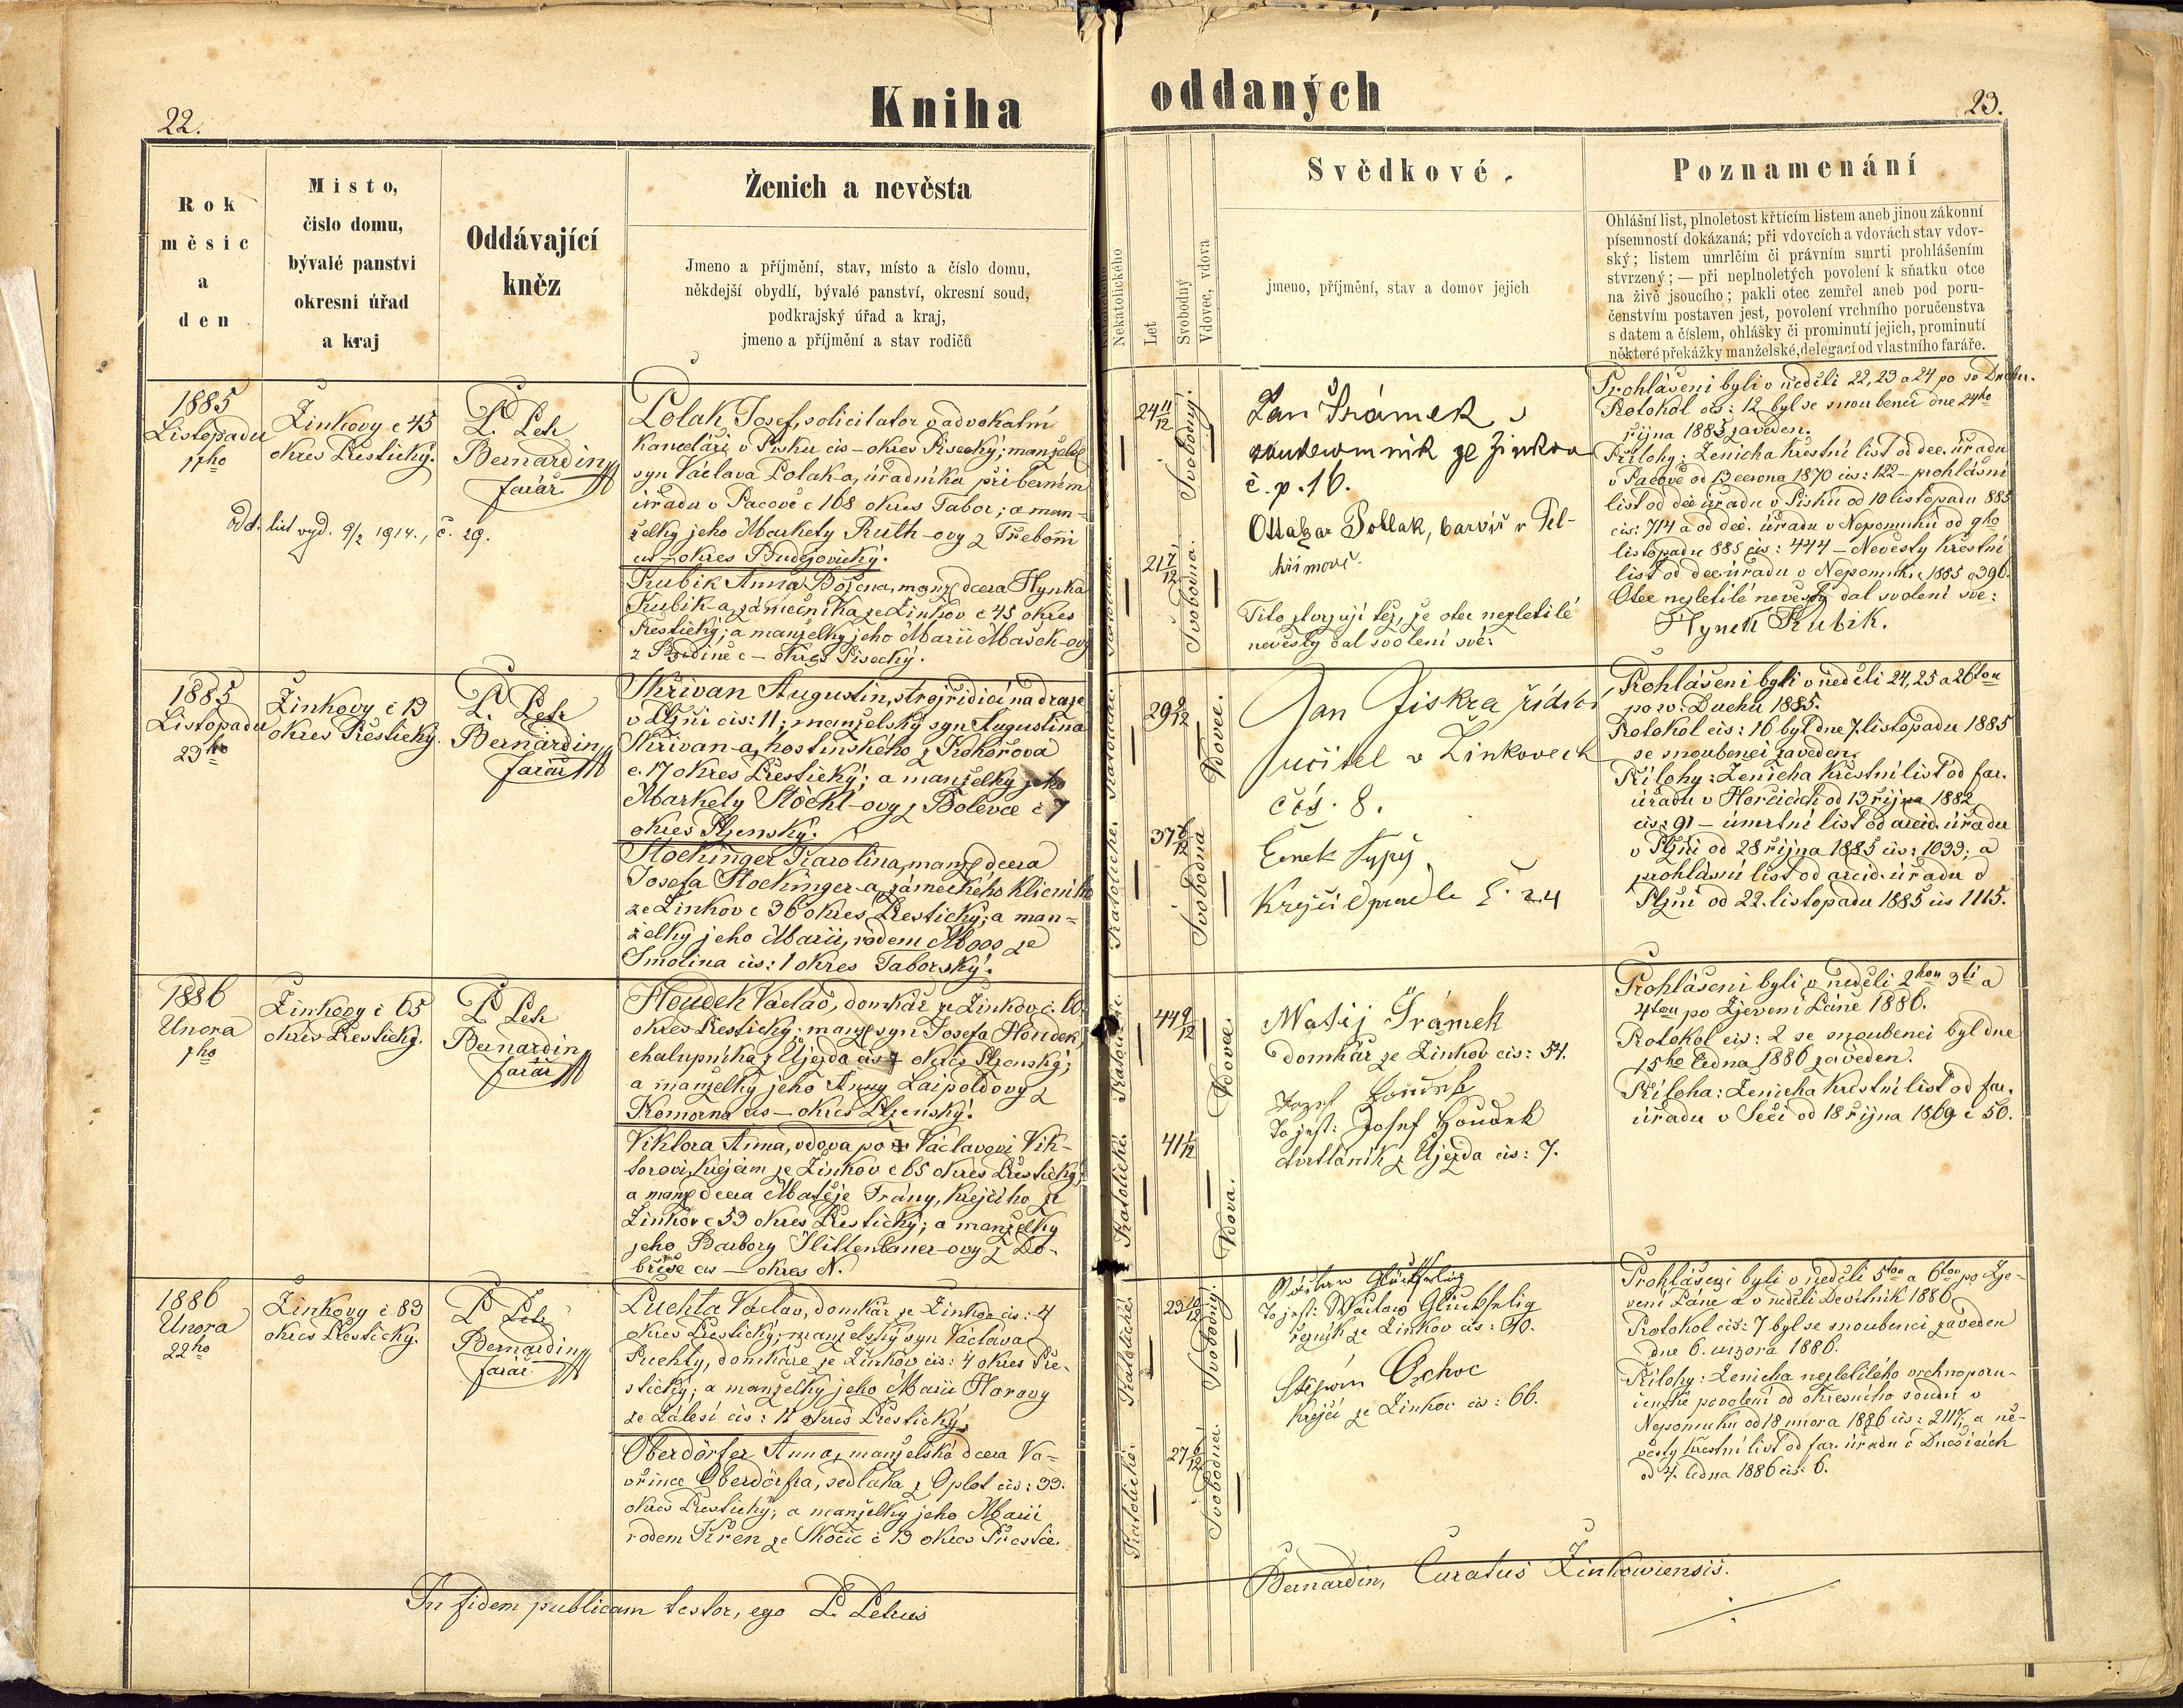 22.
Kniha
oddaných
23.
Rok
měsíc
a
den
Misto,
čislo domu,
bývalé panství
okresní úřad
a kraj
Oddávající
kněz
Ženich a nevěsta
Jmeno a příjmění, stav, místo a číslo domu,
někdejší obydlí, bývalé panství, okresní soud,
podkrajský úřad a kraj,
jmeno a příjmění a stav rodičů
Nekatolického
Let
Svobodný
Vdovec, vdova
Svědkové.
jmeno, příjmění, stav a domov jejich
Poznamenání
Ohlášní list, plnoletost křtícím listem aneb jinou zákonní
písemností dokázaná; při vdovcích a vdovách stav vdov-
ský; listem úmrlčím či právním smrti prohlášením
stvrzený; — při neplnoletých povolení k sňatku otce
na živě jsoucího; pakli otec zemřel aneb pod poru-
čenstvím postaven jest, povolení vrchního poručenstva
s datem a číslem, ohlášky či prominutí jejich, prominutí
některé překážky manželské, delegací od vlastního faráře.
1885
Listopadu
17ho
Žinkovy č 45
okres Přestický.
P. Petr
Bernardin
farář
Odd. list vyd. 9/2 1914., č. 29.
Polak Josef, solicitator v advokatní
kanceláři v Písku čís – okres Písecký; manžels
syn Václava Polak-a, úřadníka při berním
úřadu v Pacově č 168 okres Tabor; a man-
želky jeho Markety Ruth-ovy z Třeboni
čís – okres Budějovický.
Kubik Anna Božena, manž dcera Hynka
Kubik-a, zámečníka ze Žinkov č 45 okres
Přestický; a manželky jeho Marii Mašek-ovy
z č – okres Písecký.
Katolické.
24 11/12
Svobodný.
21 7/12
Svobodná.
Jan Šrámek
ze Žinkov
č. p. 16.
Ottakar Pollak, barvíř v Pel-
hřimově.
Tito stvrzují též, že otec nezletilé
nevěsty dal svolení své:
Prohlášeni byli v neděli 22, 23 a 24 po sv Duchu.
Protokol čís: 12 byl se snoubenci dne 24ho
října 1885 zaveden.
Přílohy: Ženicha křestní list od děk. úřadu
v Pacově od 13 června 1870 čís: 122 – prohlášní
list od děk úřadu v Písku od 10 listopadu 885
čís: 714 a od děk. úřadu v Nepomuku od 9ho
listopadu 885 čís: 444 – Nevěsty křestní
list od děk úřadu v Nepomuku 1885 č 396.
Otec nezletilé nevěsty dal svolení své:
Hynek Kubik.
1885
Listopadu
23ho
Žinkovy č 13
okres Přestický.
P. Petr
Bernardin
farář
Skřivan Augustin, strojřídící na dráze
v Plzni čís: 11; manželský syn Augustina
Skřivan-a, hostinského z Kohořova
č. 17 okres Přestický; a manželky jeho
Markety Stöckl-ovy z Bolevce č 7
okres Plzenský.
Stockinger Karolina, manž dcera
Josefa Stockinger-a, zámeckého klíčníka
ze Žinkov č 36 okres Přestický; a man-
želky jeho Marii, rodem Moos ze
Smolina čís: 1 okres Taborský.
Katolické.
29 2/12
Vdovec.
37 6/12
Svobodná
Jan Jiskra řídící
učitel v Žinkovech
čís. 8.
Čeněk
Krejčí č. 24
Prohlášeni byli v neděli 24, 25 a 26tou
po sv. Duchu 1885.
Protokol čís: 16 byl dne 7. listopadu 1885
se snoubenci zaveden.
Přílohy: Ženicha křestní list od far.
úřadu v Horčicích od 13 října 1882
čís: 91 – úmrtní list od arcid. úřadu
v Plzni od 28 října 1885 čís: 1033; a
prohlášní list od arcid. úřadu v
Plzni od 22. listopadu 1885 čís 1115.
1886
Unora
1ho
Žinkovy č 65
okres Přestický.
P. Petr
Bernardin
farář
Houdek Václav, domkář ze Žinkov č. 60.
okres Přestický; manž syn Josefa Houdek,
chalupníka z Újezda čís 7 okres Plzenský;
a manželky jeho Anny Laipoldovy z
Komorna čís – okres Plzenský.
Viktora Anna, vdova po Václavovi Vik-
torovi, krejčím ze Žinkov č 65 okres Přestický,
a manž dcera Matěje Trány, krejčího ze
Žinkov č 53 okres Přestický; a manželky
jeho Barbory Hittenbauer-ovy z Do-
bříše čís – okres N.
Katolické.
44 9/12
Vdovec.
41 1/12
Vdova.
Matěj Šrámek
domkář ze Žinkov čís: 54.
Jozef Houdek
To jest: Josef Houdek
čtvrtláník z Újezda čís: 7.
Prohlášeni byli v neděli 2hou 3tí a
4tou po Zjevení Páně 1886.
Protokol čís: 2 se snoubenci byl dne
15ho ledna 1886 zaveden.
Příloha: Ženicha křestní list od far.
úřadu v Seči od 18 října 1869 č 50.
1886
Unora
22ho
Žinkovy č 83
okres Přestický.
P. Petr
Bernardin
farář
Puchta Václav, domkář ze Žinkov čís: 4
okres Přestický; manželský syn Václava
Puchty, domkáře ze Žinkov čís: 4 okres Pře-
stický; a manželky jeho Marii Horovy
ze Zálesí čís: 11 okres Přestický.
Oberdörfer Anna, manželská dcera Va-
vřince Oberdörfra, sedláka z Oplot čís: 33.
okres Přestický; a manželky jeho Marii
rodem Křen ze Skočic č 13 okres Přestic.
Katolické.
Svobodný.
27 6/12
Svobodná.
Glückselig
To jest: Václav Glückselig
řezník ze Žinkov čís: 40.
Štěpán Ochoc
krejčí ze Žinkov čís: 66.
Prohlášeni byli v neděli 5tou a 6tou po Zje-
vení Páně a v neděli Devítník 1886.
Protokol čís: 7 byl se snoubenci zaveden
dne 6. unora 1886.
Přílohy: Ženicha nezletilého vrchnoporu-
čenské povolení od okresního soudu v
Nepomuku od 18 unora 1886 čís: 2117; a ne-
věsty křestní list od far. úřadu v Dnešicích
od 4. ledna 1886 čís: 6.
In fidem publicam testor, ego P. Petrus
Bernardin, Curatus Žinkowiensis.